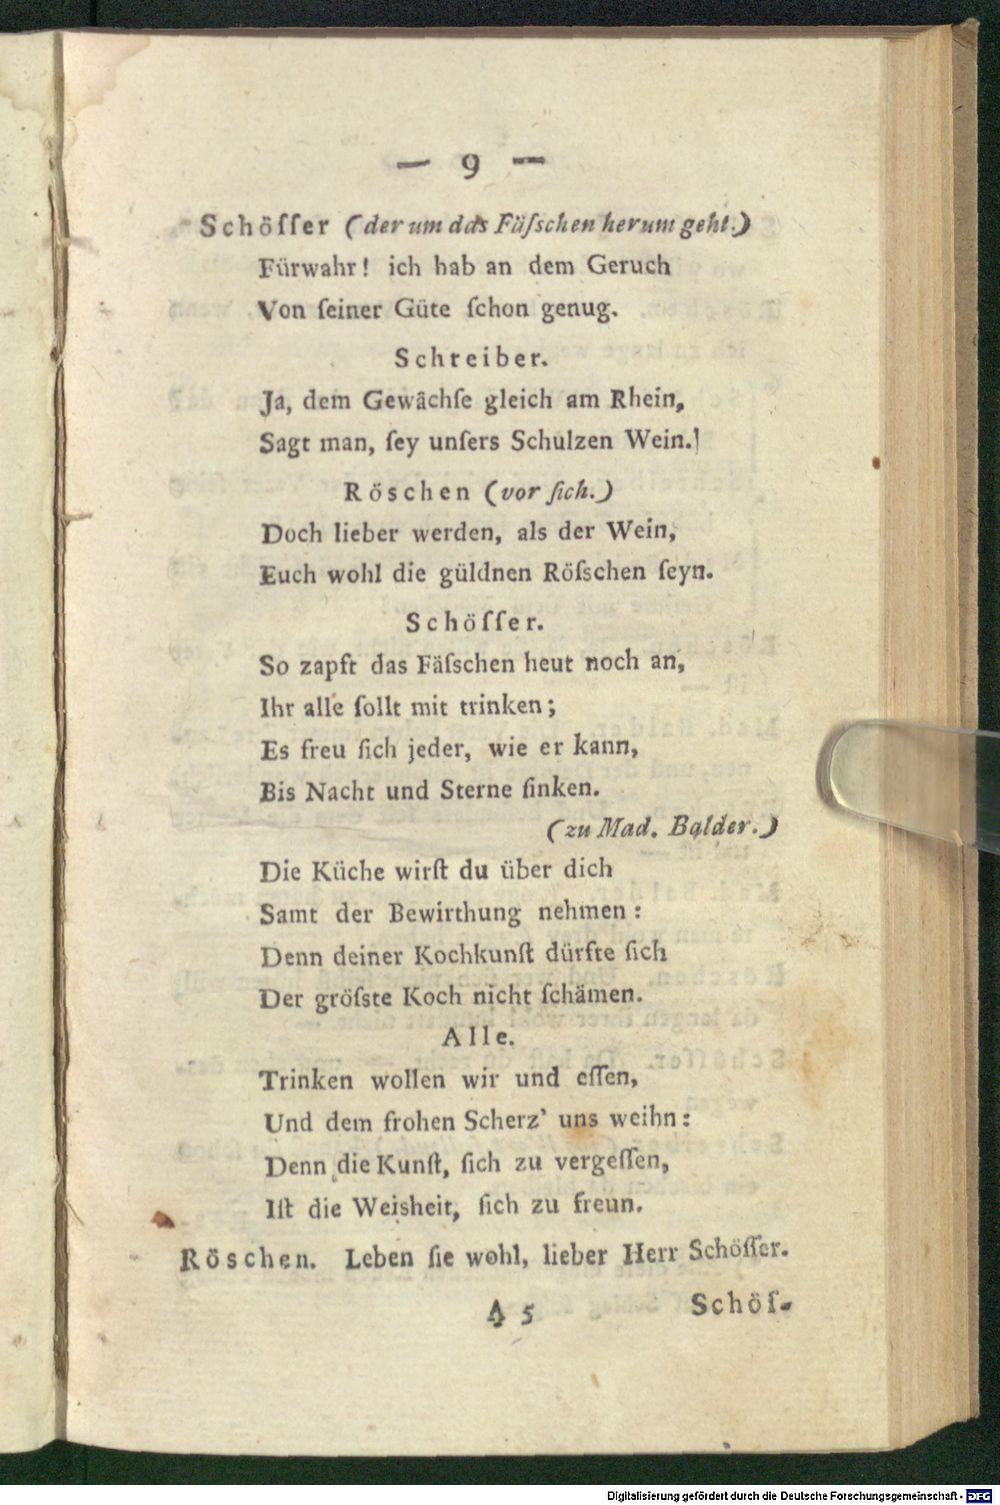 — 9 —
Schöſſer (der um das Fäſschen herum geht.)
Fürwahr! ich hab an dem Geruch
Von ſeiner Güte ſchon genug.
Schreiber.
Ja, dem Gewächſe gleich am Rhein,
Sagt man, ſey unſers Schulzen Wein.
Röschen (vor ſich.)
Doch lieber werden, als der Wein,
Euch wohl die güldnen Röſschen ſeyn.
Schöſſer.
So zapft das Fäſschen heut noch an,
Ihr alle ſollt mit trinken;
Es freu ſich jeder, wie er kann,
Bis Nacht und Sterne ſinken.
(zu Mad. Balder.)
Die Küche wirſt du über dich
Samt der Bewirthung nehmen:
Denn deiner Kochkunſt dürfte ſich
Der gröſste Koch nicht ſchämen.
Alle.
Trinken wollen wir und eſſen,
Und dem frohen Scherz' uns weihn:
Denn die Kunſt, ſich zu vergeſſen,
Iſt die Weisheit, ſich zu freun.
Röschen. Leben ſie wohl, lieber Herr Schöſſer.
A 5 Schöſ-
Digitalisierung gefördert durch die Deutsche Forschungsgemeinschaft - DFG